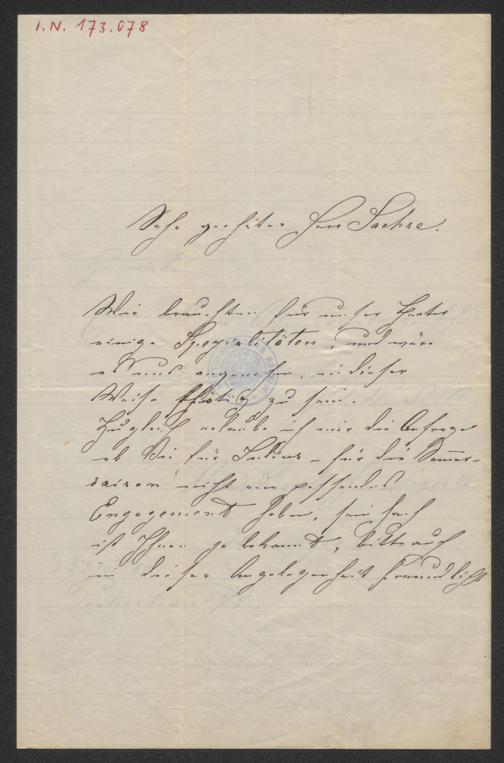 I.N. 173.078
Sehr geehrter Herr Sachse.
Wir brauchten für unser Theater
einige Spezialitäten, und wäre
es uns angenehm, in dieser
Weise zu sein.
Zugleich erlaube ich mir die Anfrage
ob Sie für Julius – für die Sommer-
saison nicht ein passendes
Engagement haben, sein Fach
ist Ihnen ja bekannt, bitte auch
in dieser Angelegenheit freundlichst